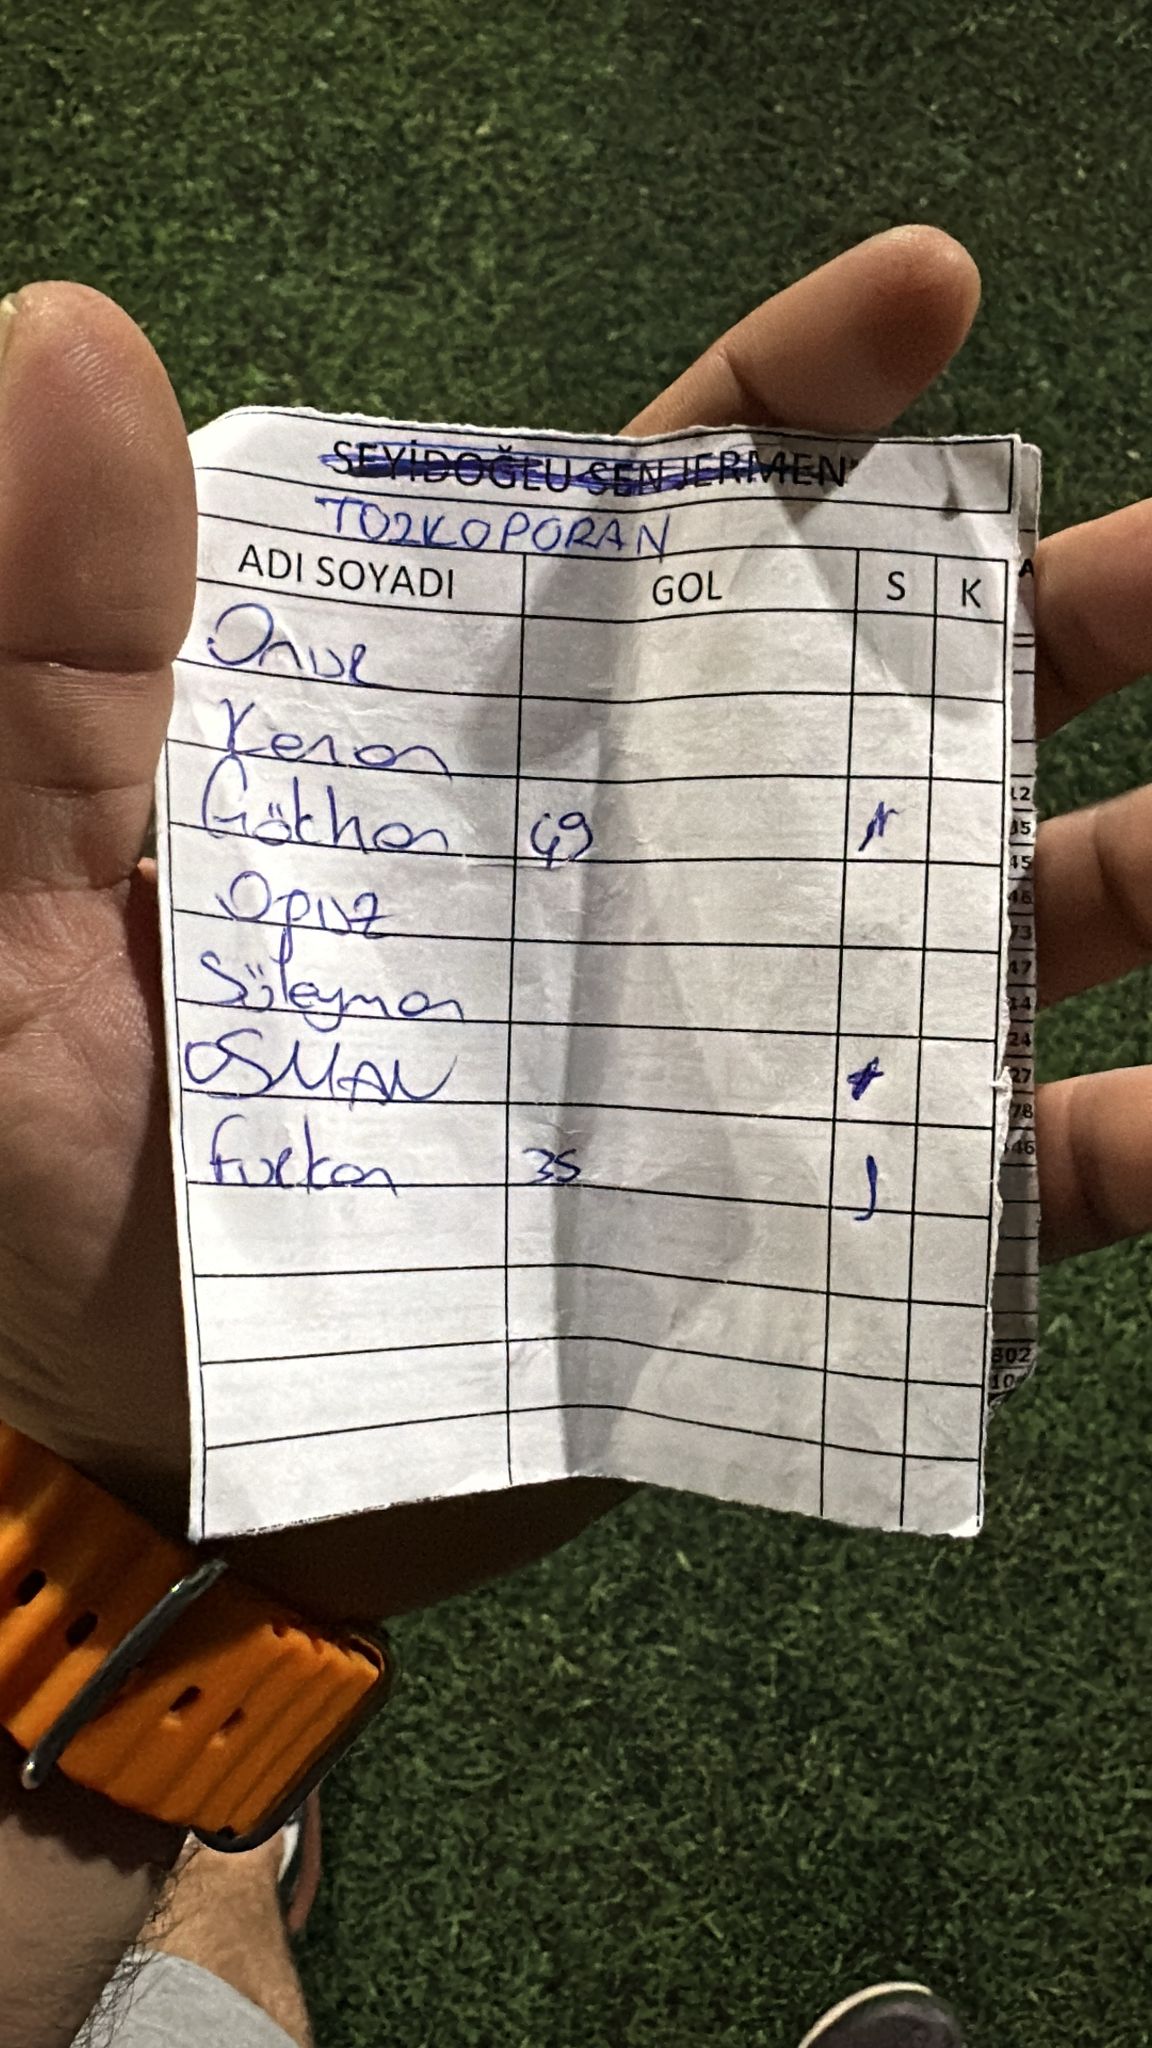 SEYİDOĞLU SEN JERMEN
TOZKOPORAN
ADI SOYADI GOL S K
Onur
Kenan
Gökhan 49
Oğuz
Süleyman
OSMAN
Furkan 35
A
12
35
45
46
73
47
14
24
27
78
46
802
10